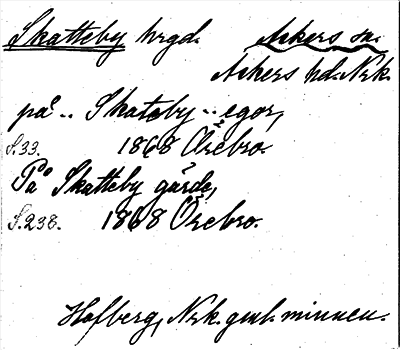 Skatteby hrgd. Askers sn.
Askers hd. Nrk.
på .. Skateby .. egor,
S.33. 1868 Örebro.
På Skatteby gärde,
S.238. 1868 Örebro.
Hofberg, Nrk. gml. minnen.